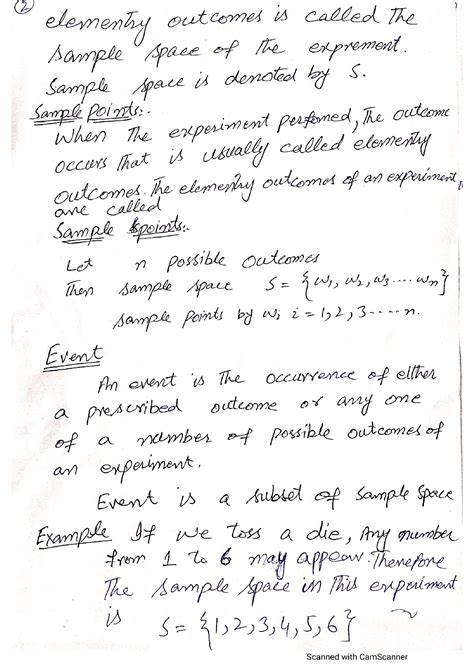 2
elementry outcomes is called The
sample space of the exprement.
Sample space is denoted by S.
Sample Points:-
When The experiment perfomed, The outcome
occurs That is usually called elementy
outcomes. The elementry outcomes of an experiment
are called
Sample points:-
Let n possible outcomes
Then sample space S = {ω1, ω2, ω3 .... ωn}
sample points by ωi i = 1, 2, 3 ---- n.
Event
An event is The occurrence of either
a prescribed outcome or any one
of a number of possible outcomes of
an experiment.
Event is a subset of sample space
Example If we toss a die, Any number
from 1 to 6 may appear. Therefore
The sample space in This experiment
is
S = {1, 2, 3, 4, 5, 6}
Scanned with CamScanner